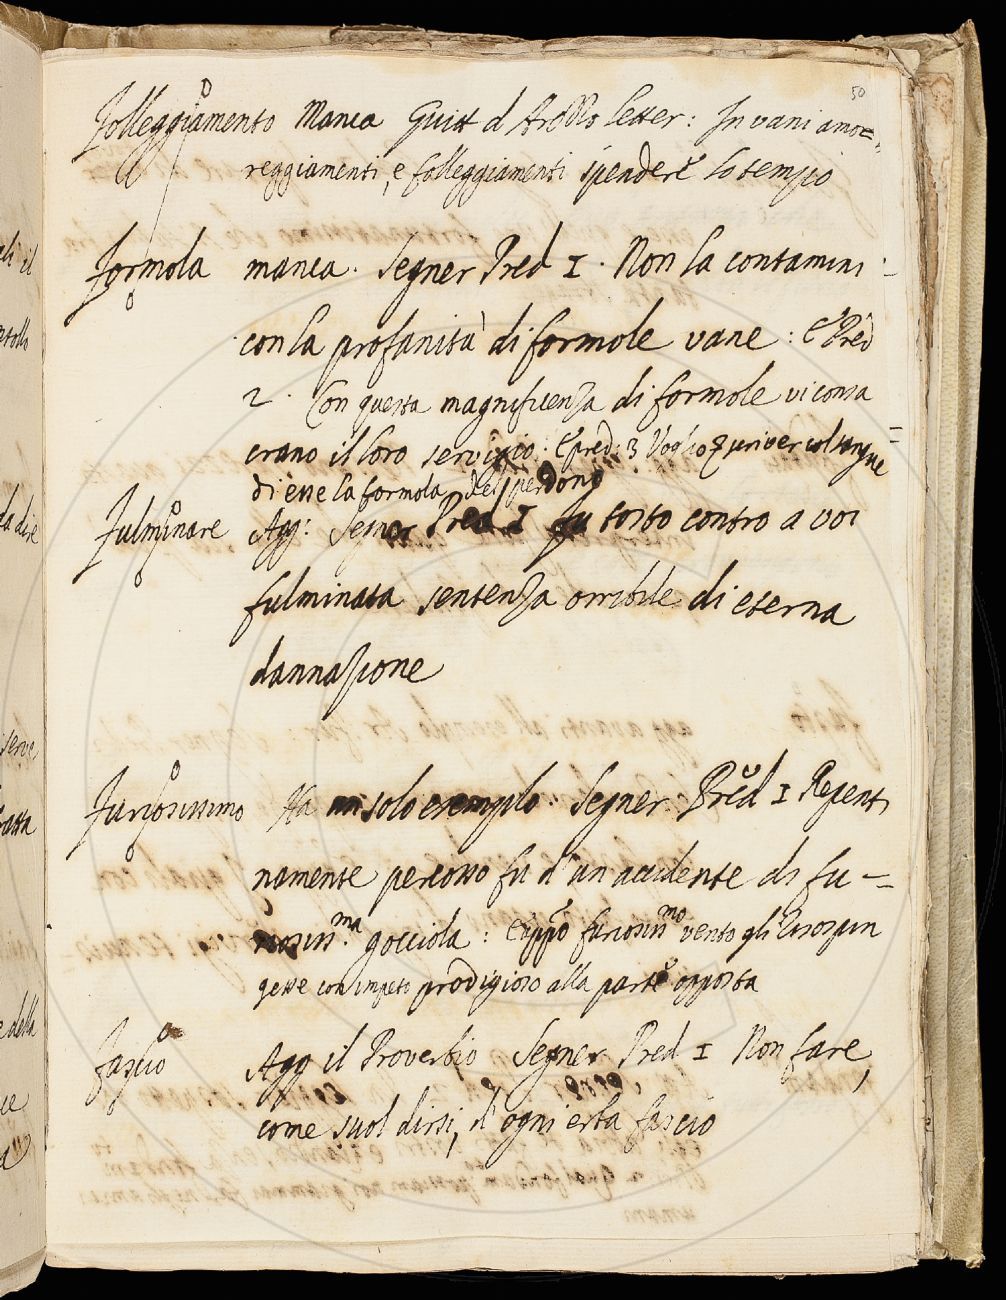 50
Folleggiamento Manca Guitt d Arezzo letter: In vani amo=
reggiamenti, e folleggiamenti spendere lo tempo
Formola manca. Segner Pred I. Non la contamini
con la profanità di formole vane: E Pred
2. Con questa magnificenza di formole vi consa
crano il loro servigio: E pred: 3 Voglio scriver col sangue
di esse la formola del perdono
Fulminare Agg: Segner Pred I fu tosto contro a voi
fulminata sentenza orribile di eterna
dannazione
Furiosissimo Ha un solo exemplo: Segner Pred I Repenti
namente percosso fu d'un accidente di fu=
riosiss.ma gocciola: E appo furiosiss.mo vento gli
gesse con impeto prodigioso alla parte opposta
Fascio Agg il Proverbio Segner Pred I Non fare,
come suol dirsi, d'ogni erba fascio